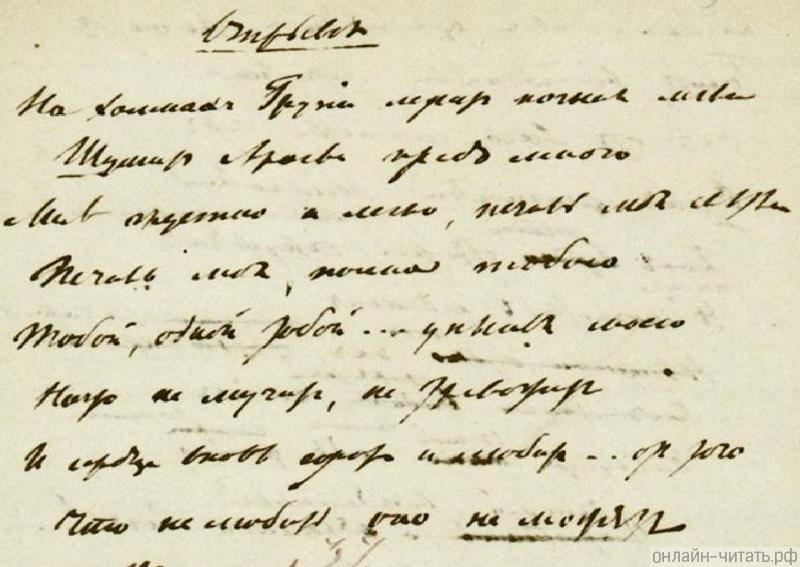 Отрывок
На холмах Грузіи лежит ночная мгла
Шумит Арагва предо мною
Мнѣ грустно и легко, печаль моя свѣтла
Печаль моя полна тобою
Тобой, одной тобой... унынья моего
Ничто не мучит, не тревожит
И сердце вновь горит и любит... от того
Что не любить оно не может
онлайн-читать.рф